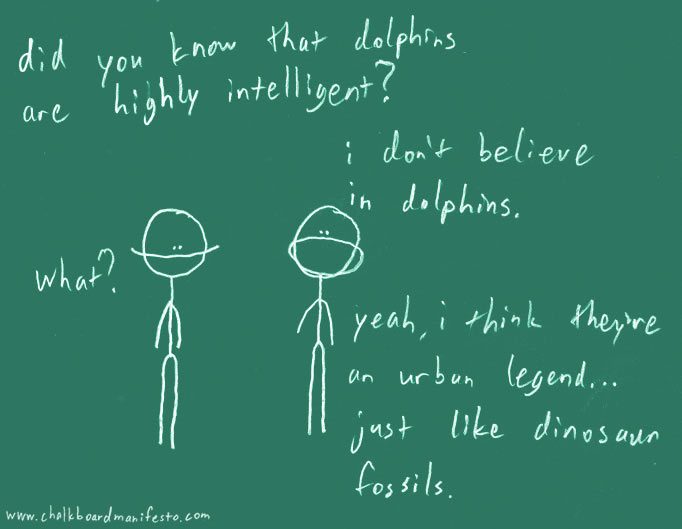 did you know that dolphins
are highly intelligent?
i don't believe
in dolphins.
what?
yeah, i think they're
an urban legend...
just like dinosaur
fossils.
www.chalkboardmanifesto.com